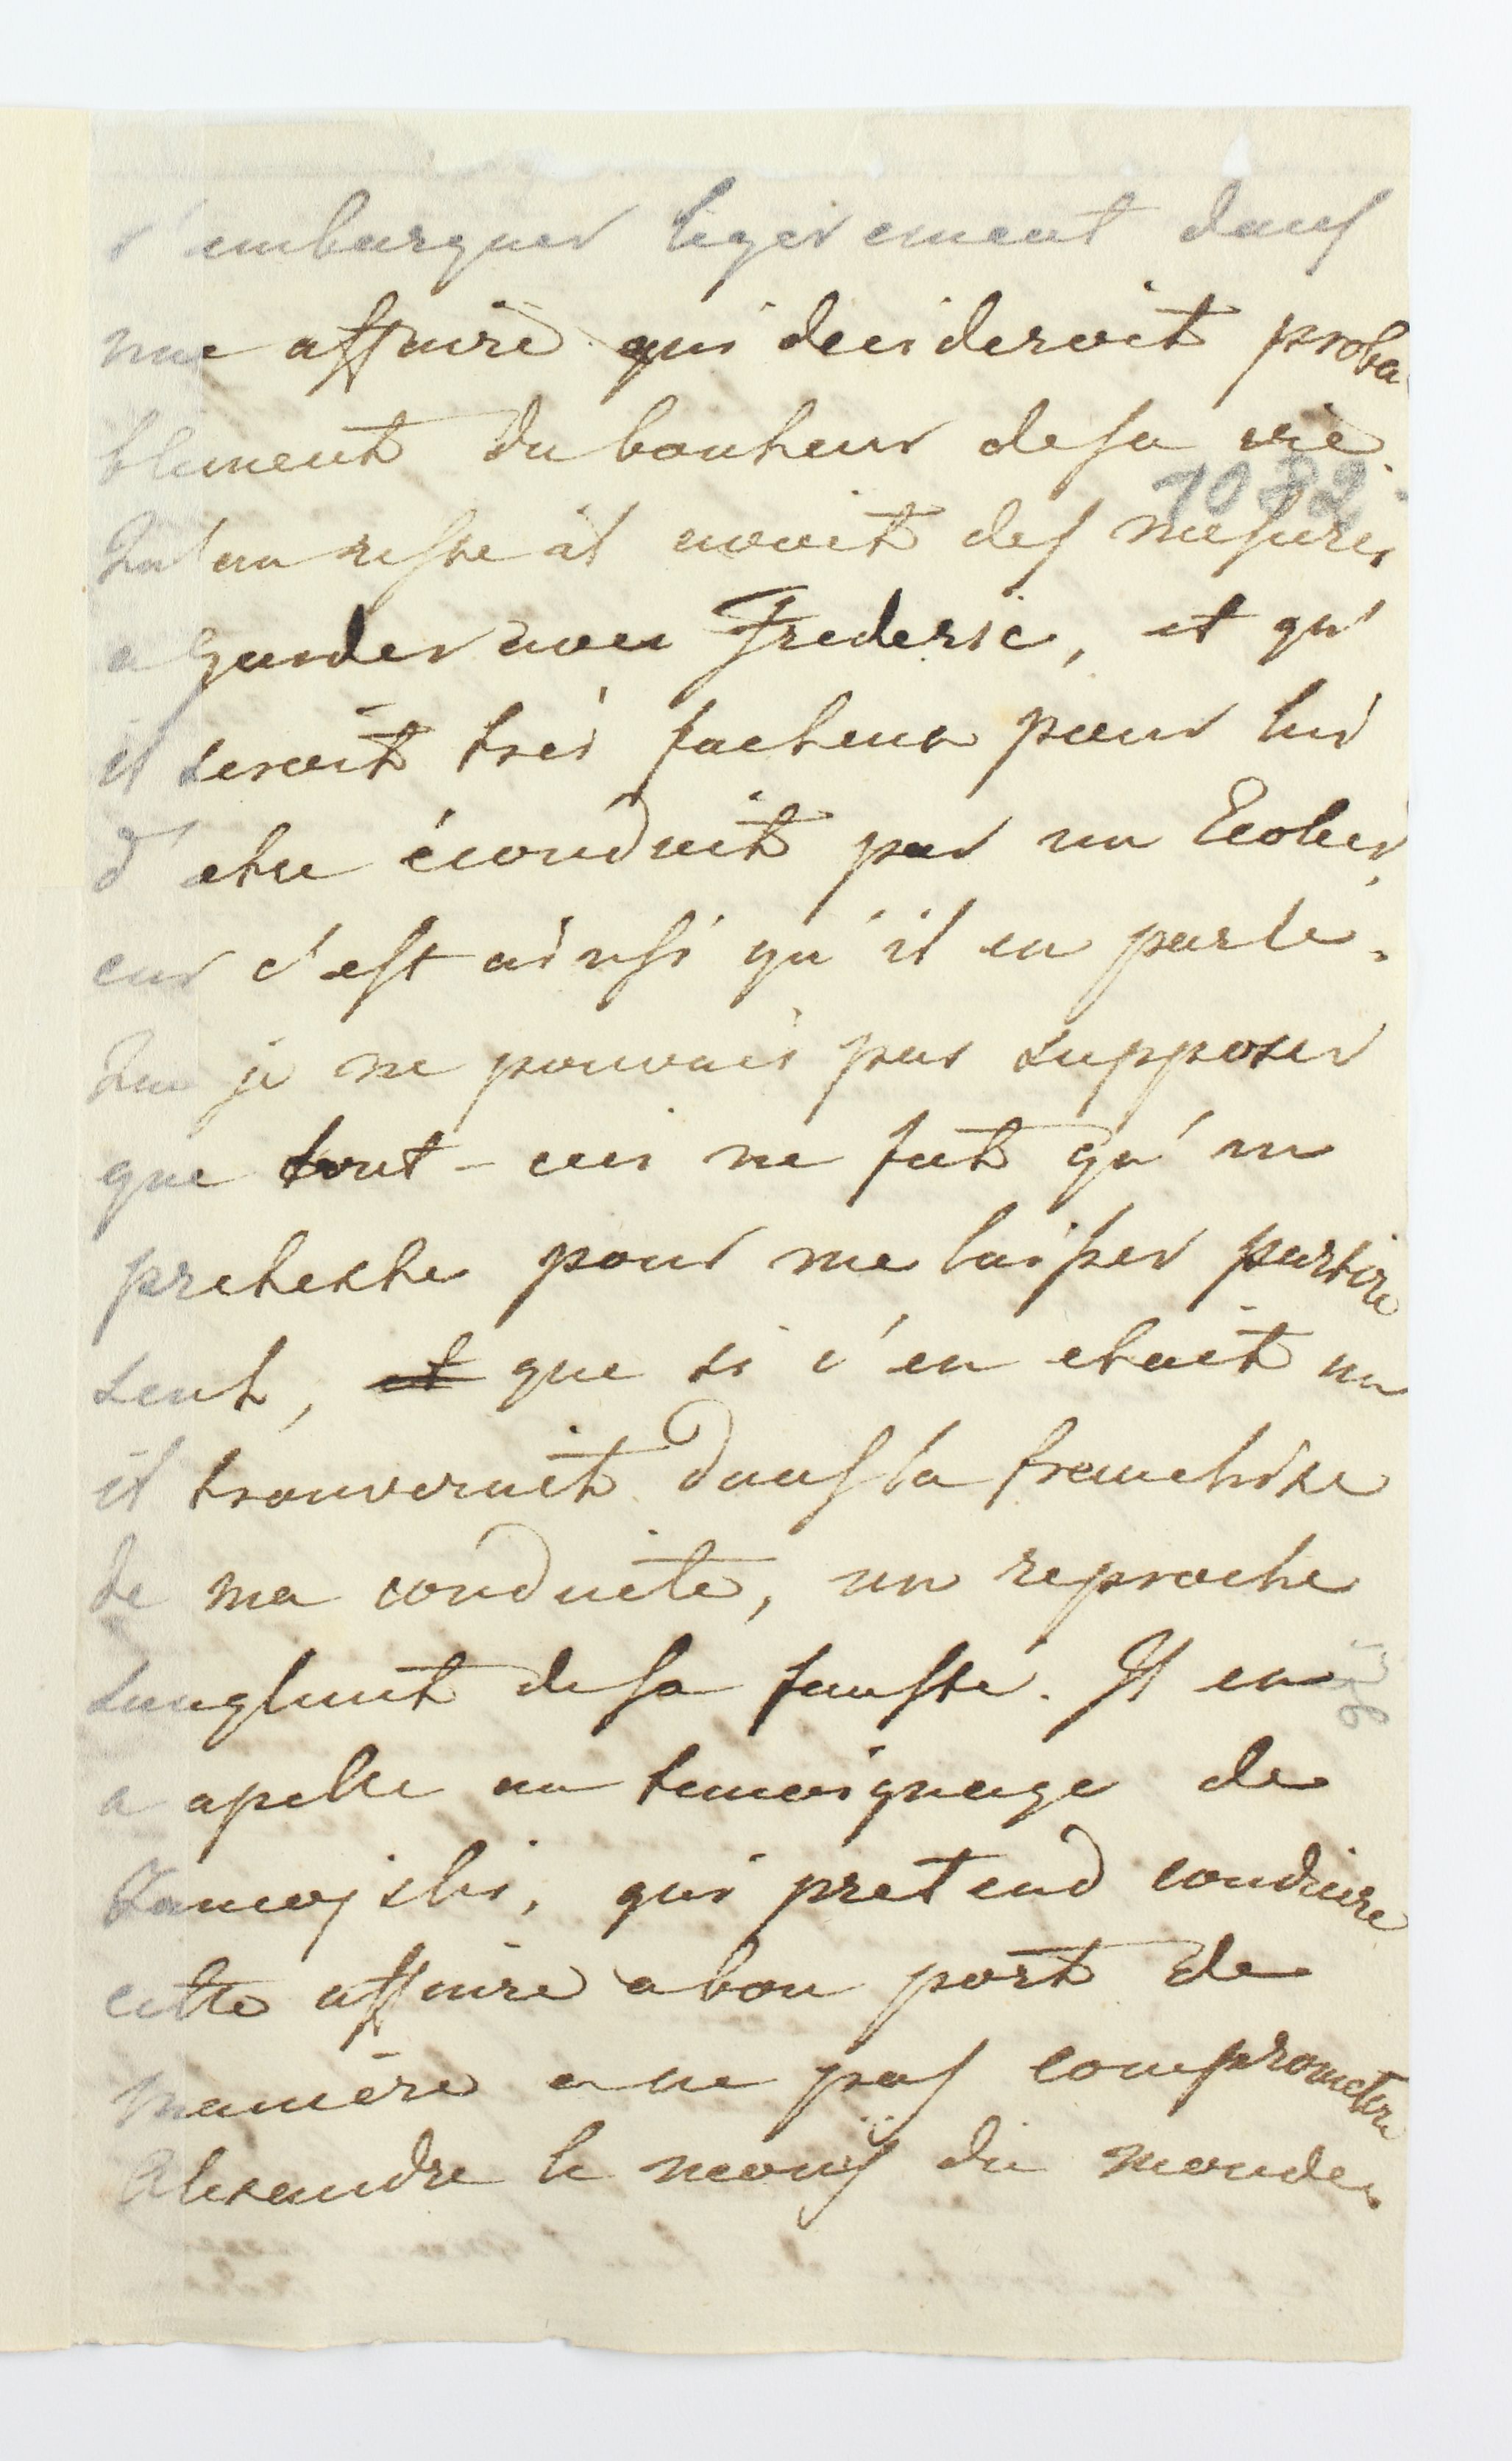 s'embarquer legerement dans
une affaire qui decideroit proba
blement du bonheur de sa vie.
1032
Qu'au reste il avoit des mesures
a garder avec Frederic, et qu'
il seroit tres facheux pour lui
d'etre éconduit par un Ecolier,
car c'est ainsi qu'il en parle.
Que je ne pouvais pas supposer
que tout-ceci ne fut qu'un
pretexte pour me laisser partire
seul, et que si c'en etait un
il trouverait dans la franchise
de ma conduite, un reproche
sanglant de sa fausste. Il en
a apelle au temoignage de
Zamojski, qui pretend conduire
cette affaire a bon port de
maniere a ne pas comprometre
Alexandre le moins du monde.